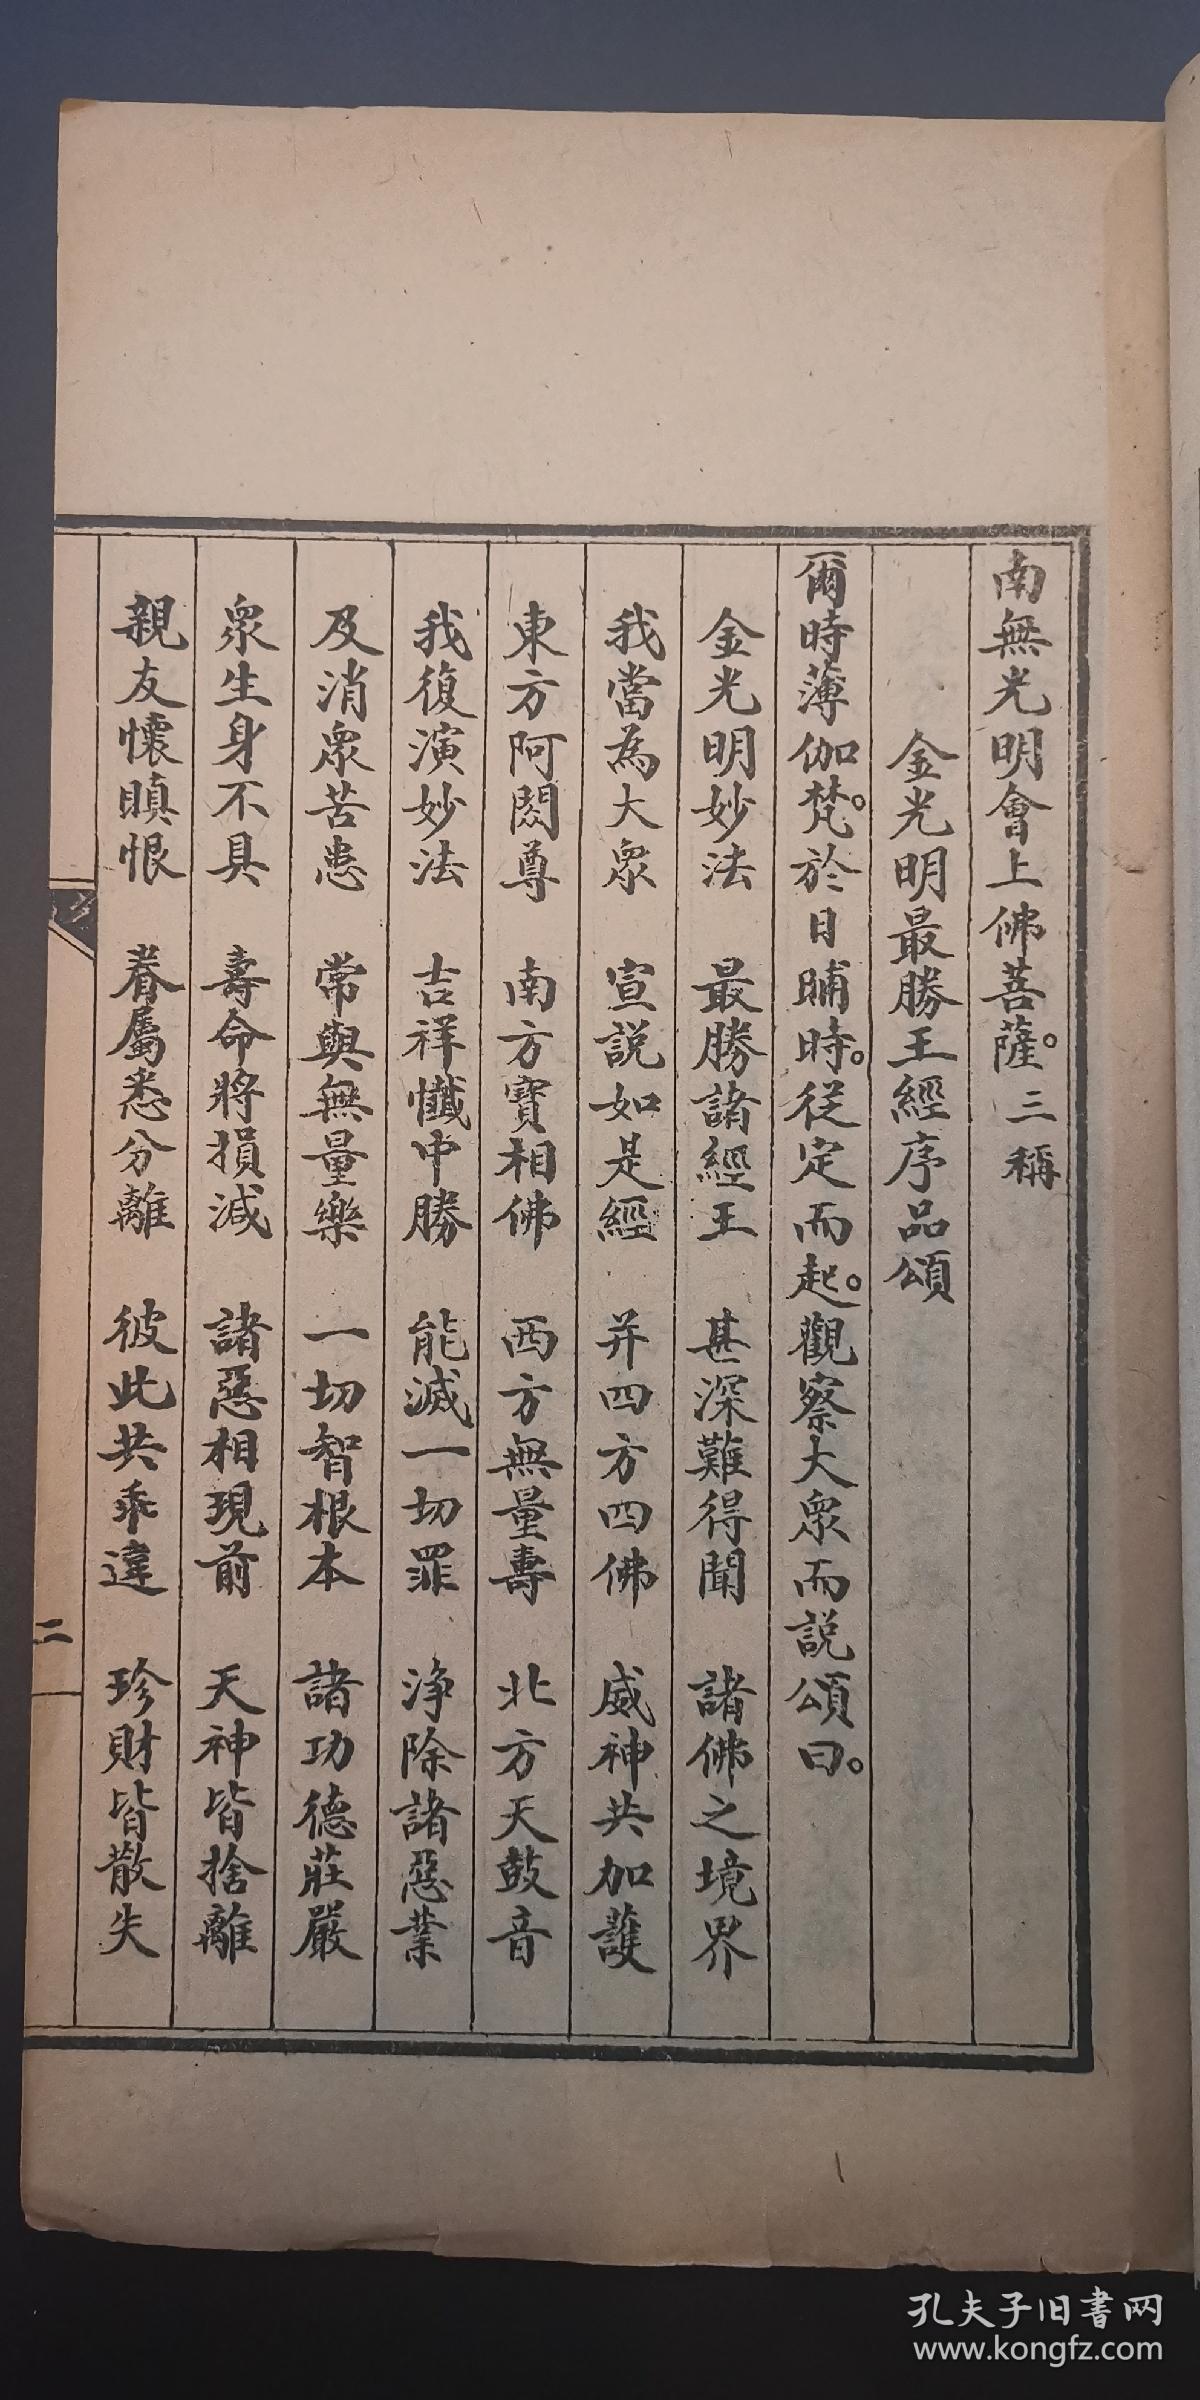 南無光明會上佛菩薩。三稱
金光明最勝王經序品頌
爾時薄伽梵。於日晡時。從定而起。觀察大衆而説頌曰。
金光明妙法 最勝諸經王 甚深難得聞 諸佛之境界
我當為大衆 宣説如是經 并四方四佛 威神共加護
東方阿閦尊 南方寶相佛 西方無量壽 北方天鼓音
我復演妙法 吉祥懺中勝 能滅一切罪 淨除諸惡業
及消衆苦患 常與無量樂 一切智根本 諸功德莊嚴
衆生身不具 壽命將損減 諸惡相現前 天神皆捨離
親友懷瞋恨 眷屬悉分離 彼此共乖違 珍財皆散失
二
孔夫子旧书网
www.kongfz.com